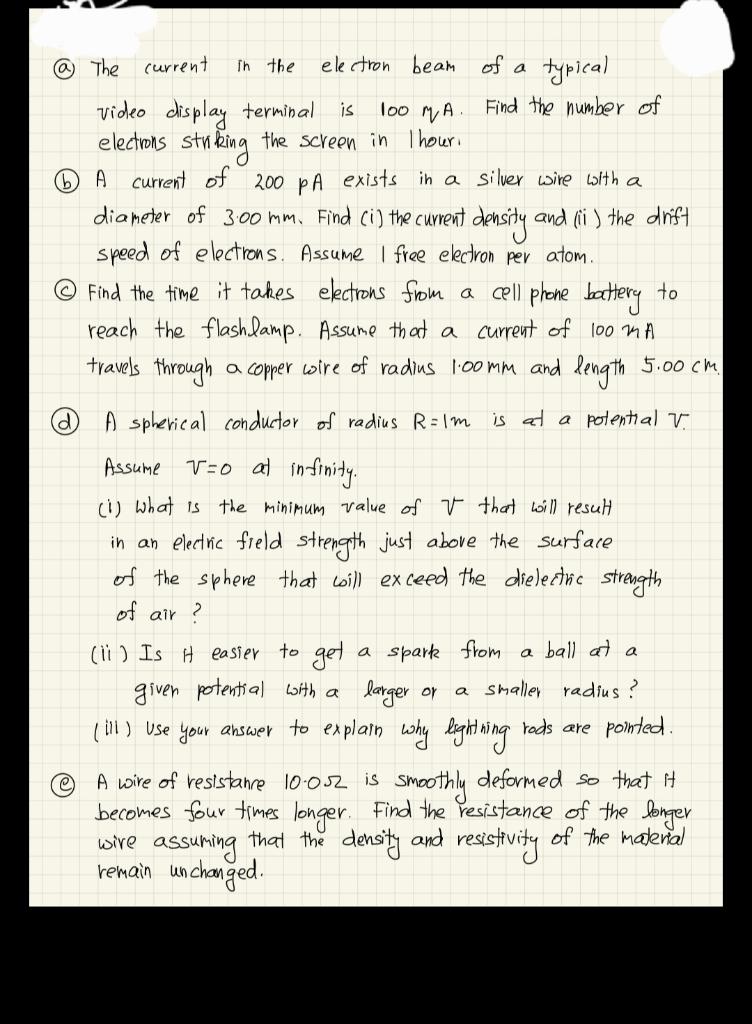 ⓐ The current in the electron beam of a typical
video display terminal is 100 μA. Find the number of
electrons striking the screen in 1 hour.
ⓑ A current of 200 pA exists in a silver wire with a
diameter of 3.00 mm. Find (i) the current density and (ii) the drift
speed of electrons. Assume 1 free electron per atom.
ⓒ Find the time it takes electrons from a cell phone battery to
reach the flashlamp. Assume that a current of 100 mA
travels through a copper wire of radius 1.00 mm and length 5.00 cm.
ⓓ A spherical conductor of radius R=1m is at a potential V.
Assume V=0 at infinity.
(i) What is the minimum value of V that will result
in an electric field strength just above the surface
of the sphere that will exceed the dielectric strength
of air ?
(ii) Is it easier to get a spark from a ball at a
given potential with a larger or a smaller radius ?
(iii) Use your answer to explain why lightning rods are pointed.
ⓔ A wire of resistance 10.0Ω is smoothly deformed so that it
becomes four times longer. Find the resistance of the longer
wire assuming that the density and resistivity of the material
remain unchanged.